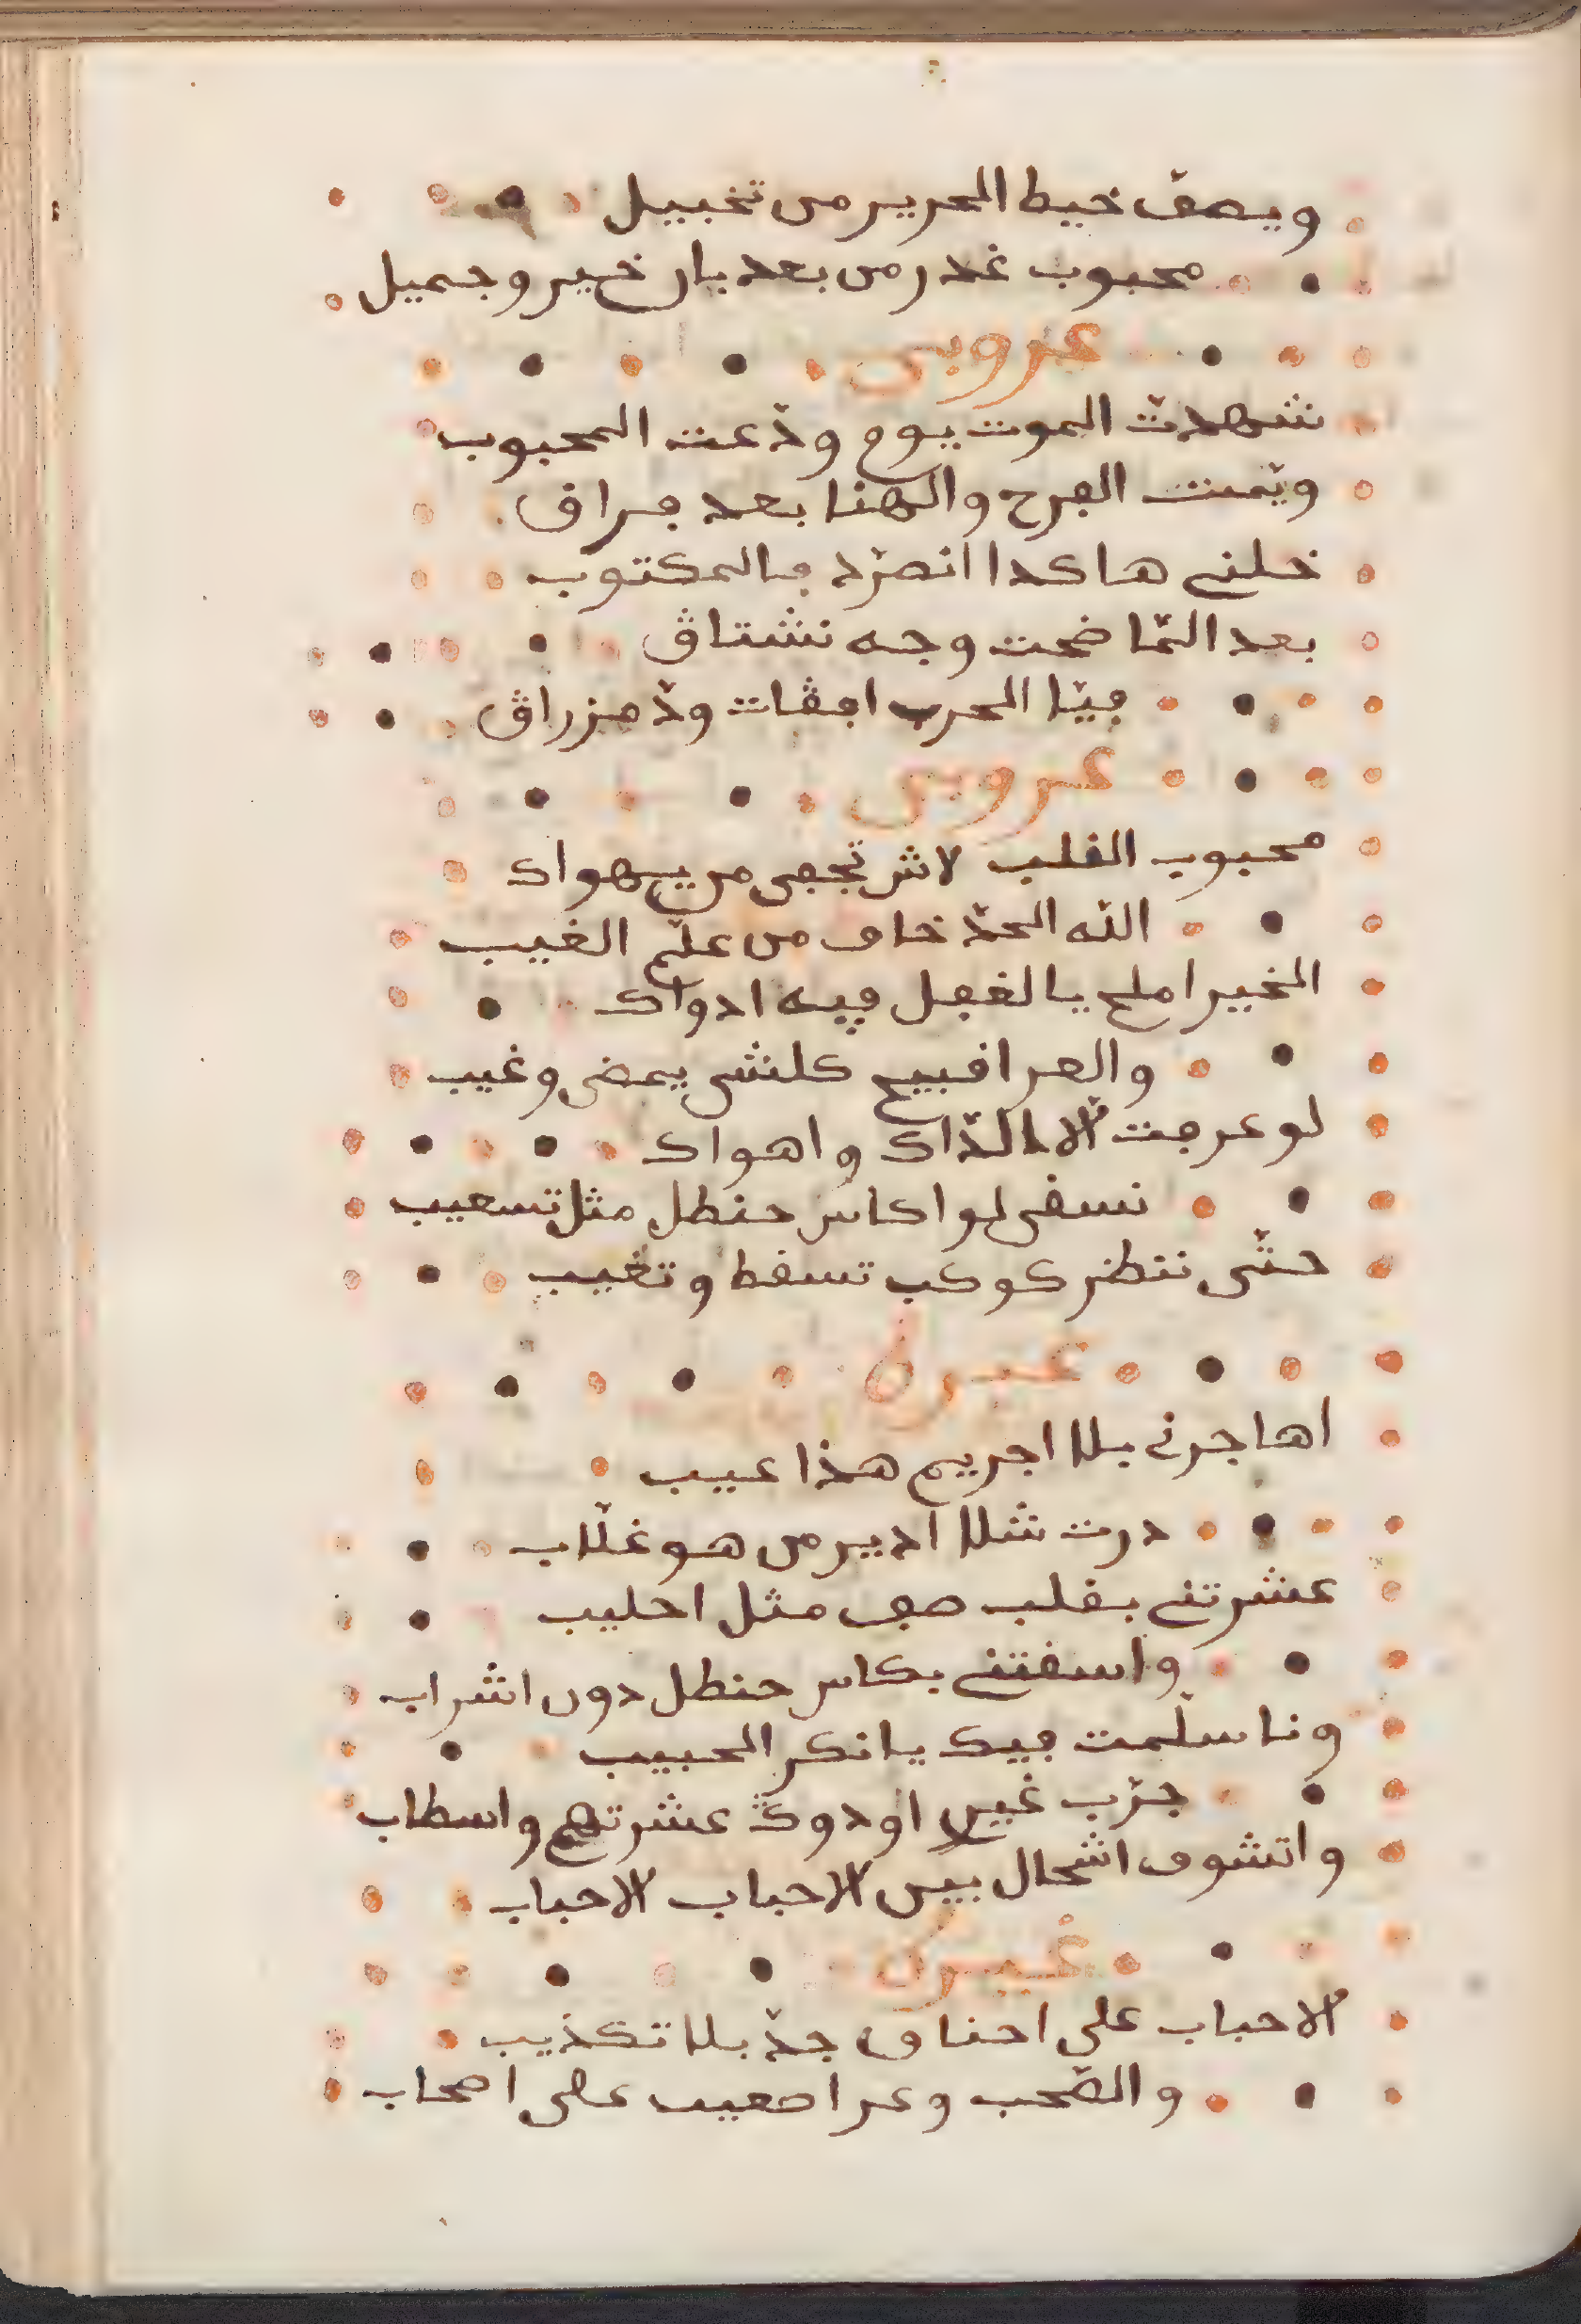 ويصفّ خيط الحرير من تخبيل
محبوب غدر من بعد بان خير وجميل
عروبي
شهدتّ الموت يوم ودّعت المحبوب
ويّمت الفرح والهنا بعد فراق
خلني هاكدا انصرّد فالمكتوب
بعد النّما ضحت وجه نشتاق
فيّا الحرب افقات ودّ مزراق
عروبي
محبوب القلب لاش تجفى من يهواك
الله الحدّ خاف من علّم الغيب
الخير املح يا لغفل فيه ادواك
والعر اقبيح كلشى يمضى وغيب
لو عرفت الا لذّاك واهواك
نسقى لو اكاس حنظل مثل تسعيب
حتّى ننظر كوكب تسقط وتغيب
غيره
اهاجرني بلا اجريم هذا عيب
درت شلا ادير من هو غلّاب
عشرتني بقلب صفى مثل احليب
واسقتني بكاس حنظل دون اشراب
ونا سلّمت فيك يا نكر الحبيب
جرّب غيري اودوك عشرتهم واسطاب
واتشوف اشحال بين الاحباب الاحباب
غيره
الاحباب على احناف جدّ بلا تكذيب
والصّحب وعر اصعيب على اصحاب